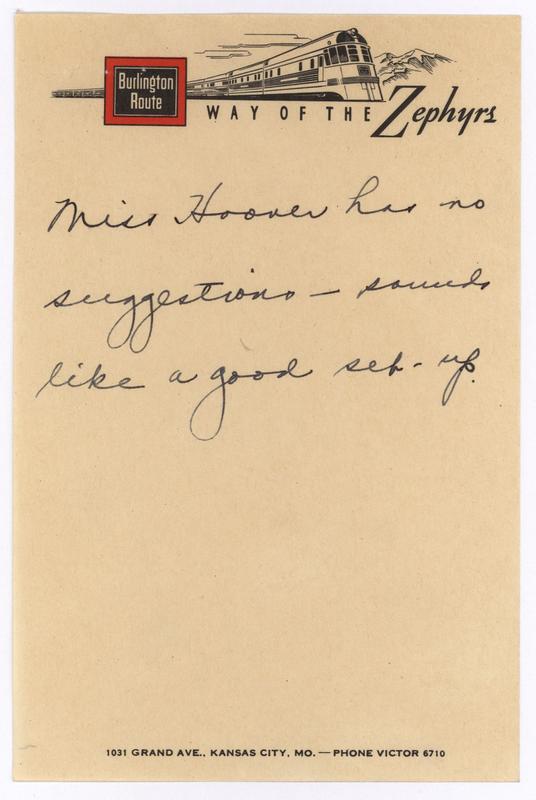 Burlington
Route
WAY OF THE Zephyrs
Miss Hoover has no
suggestions — sounds
like a good set-up.
1031 GRAND AVE., KANSAS CITY, MO. — PHONE VICTOR 6710